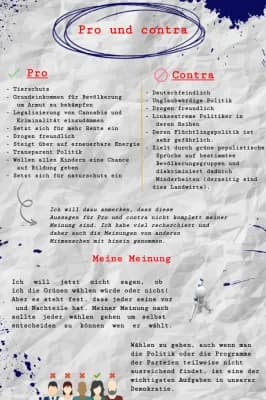 Pro und contra
Pro
- Tierschutz
- Grundeinkommen für Bevölkerung
um Armut zu bekämpfen
- Legalisierung von Cannabis und
Kriminalität einzudämmen
- Setzt sich für mehr Rente ein
- Drogen freundlich
- Steigt über auf erneuerbare Energie
- Transparent Politik
- Wollen alles Kindern eine Chance
auf Bildung geben
- Setzt sich für naturschutz ein
Contra
- Deutschfeindlich
- Unglaubwürdige Politik
- Drogen freundlich
- Linksextreme Politiker in
deren Reihen
- Deren Flüchtlingspolitik ist
sehr gefährlich
- Zielt durch grüne populistische
Sprüche auf bestimmtes
Bevölkerungsgruppen und
diskriminiert dadurch
Minderheiten (derzeitig sind
dies Landwirte).
Ich will dazu anmerken, dass diese
Aussagen für Pro und contra nicht komplett meiner
Meinung sind. Ich habe viel recherchiert und
daher auch die Meinungen von anderen
Mitmenschen mit hinein genommen.
Meine Meinung
Ich will jetzt nicht sagen, ob
ich die Grünen wählen würde oder nicht!
Aber es steht fest, dass jeder seine vor
und Nachteile hat. Meiner Meinung nach
sollte jeder wählen gehen um selbst
entscheiden zu können wen er wählt.
Wählen zu gehen, auch wenn man
die Politik oder die Programme
der Parteien teilweise nicht
ausreichend findet, ist eine der
wichtigsten Aufgaben in unserer
Demokratie.